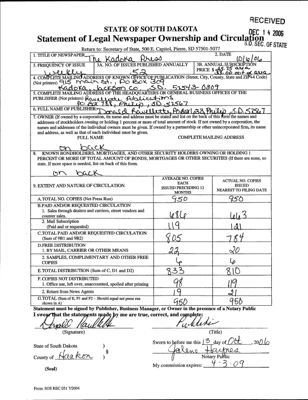 RECEIVED
DEC 14 2006
S.D. SEC. OF STATE
STATE OF SOUTH DAKOTA
Statement of Legal Newspaper Ownership and Circulation
Return to: Secretary of State, 500 E. Capitol, Pierre, SD 57501-5077
1. TITLE OF NEWSPAPER The Kadoka Press
2. DATE 10/6/06
3. FREQUENCY OF ISSUE weekly
3A. NO. OF ISSUES PUBLISHED ANNUALLY 52
3B. ANNUAL SUBSCRIPTION PRICE $
4. COMPLETE MAILING ADDRESS OF KNOWN OFFICE OF PUBLICATION (Street, City, County, State and ZIP+4 Code)
(Not printer) 915 main St., PO Box 309
Kadoka Jackson Co SD 57543-0309
5. COMPLETE MAILING ADDRESS OF THE HEADQUARTERS OF GENERAL BUSINESS OFFICES OF THE
PUBLISHER (Not printer) Ravellette Publications
PO Box 788, Philip, SD 57567
6. FULL NAME OF PUBLISHER: Donald Ravellette, Philip SD 57567
7. OWNER (If owned by a corporation, its name and address must be stated and list on the back of this form the names and
addresses of stockholders owning or holding 1 percent or more of total amount of stock. If not owned by a corporation, the
names and addresses of the individual owners must be given. If owned by a partnership or other unincorporated firm, its name
and address, as well as that of each individual must be given.
FULL NAME COMPLETE MAILING ADDRESS
on back
8. KNOWN BONDHOLDERS, MORTGAGES, AND OTHER SECURITY HOLDERS OWNING OR HOLDING 1
PERCENT OR MORE OF TOTAL AMOUNT OF BONDS, MORTGAGES OR OTHER SECURITIES (if there are none, so
state. If more space is needed, list on back of this form.
on back
9. EXTENT AND NATURE OF CIRCULATION
AVERAGE NO. COPIES EACH ISSUED PRECEDING 12 MONTHS
ACTUAL NO. COPIES ISSUED NEAREST TO FILING DATE
A. TOTAL NO. COPIES (Net Press Run) 950 950
B. PAID AND/OR REQUESTED CIRCULATION
1. Sales through dealers and carriers, street vendors and
counter sales. 686 663
2. Mail Subscription
(Paid and or requested) 119 121
C. TOTAL PAID AND/OR REQUESTED CIRCULATION
(Sum of 9B1 and 9B2) 805 784
D. FREE DISTRIBUTION
1. BY MAIL, CARRIER OR OTHER MEANS 22 20
2. SAMPLES, COMPLIMENTARY AND OTHER FREE
COPIES 6 6
E. TOTAL DISTRIBUTION (Sum of C, D1 and D2) 833 810
F. COPIES NOT DISTRIBUTED
1. Office use, left over, unaccounted, spoiled after printing 98 119
2. Return from News Agents 19 21
G. TOTAL (Sum of E, F1 and F2 - Should equal net press run
shown in A) 950 950
Statement must be signed by Publisher, Business Manager, or Owner in the presence of a Notary Public
I swear that the statements made by me are true, correct, and complete:
Donald Ravellette Publisher
(Signature) (Title)
State of South Dakota )
County of Haakon )
(Seal)
Sworn to before me this 13 day of Oct, 2006
Notary Public
My commission expires: 4-3-09
Form: SOS REC 051 7/2004